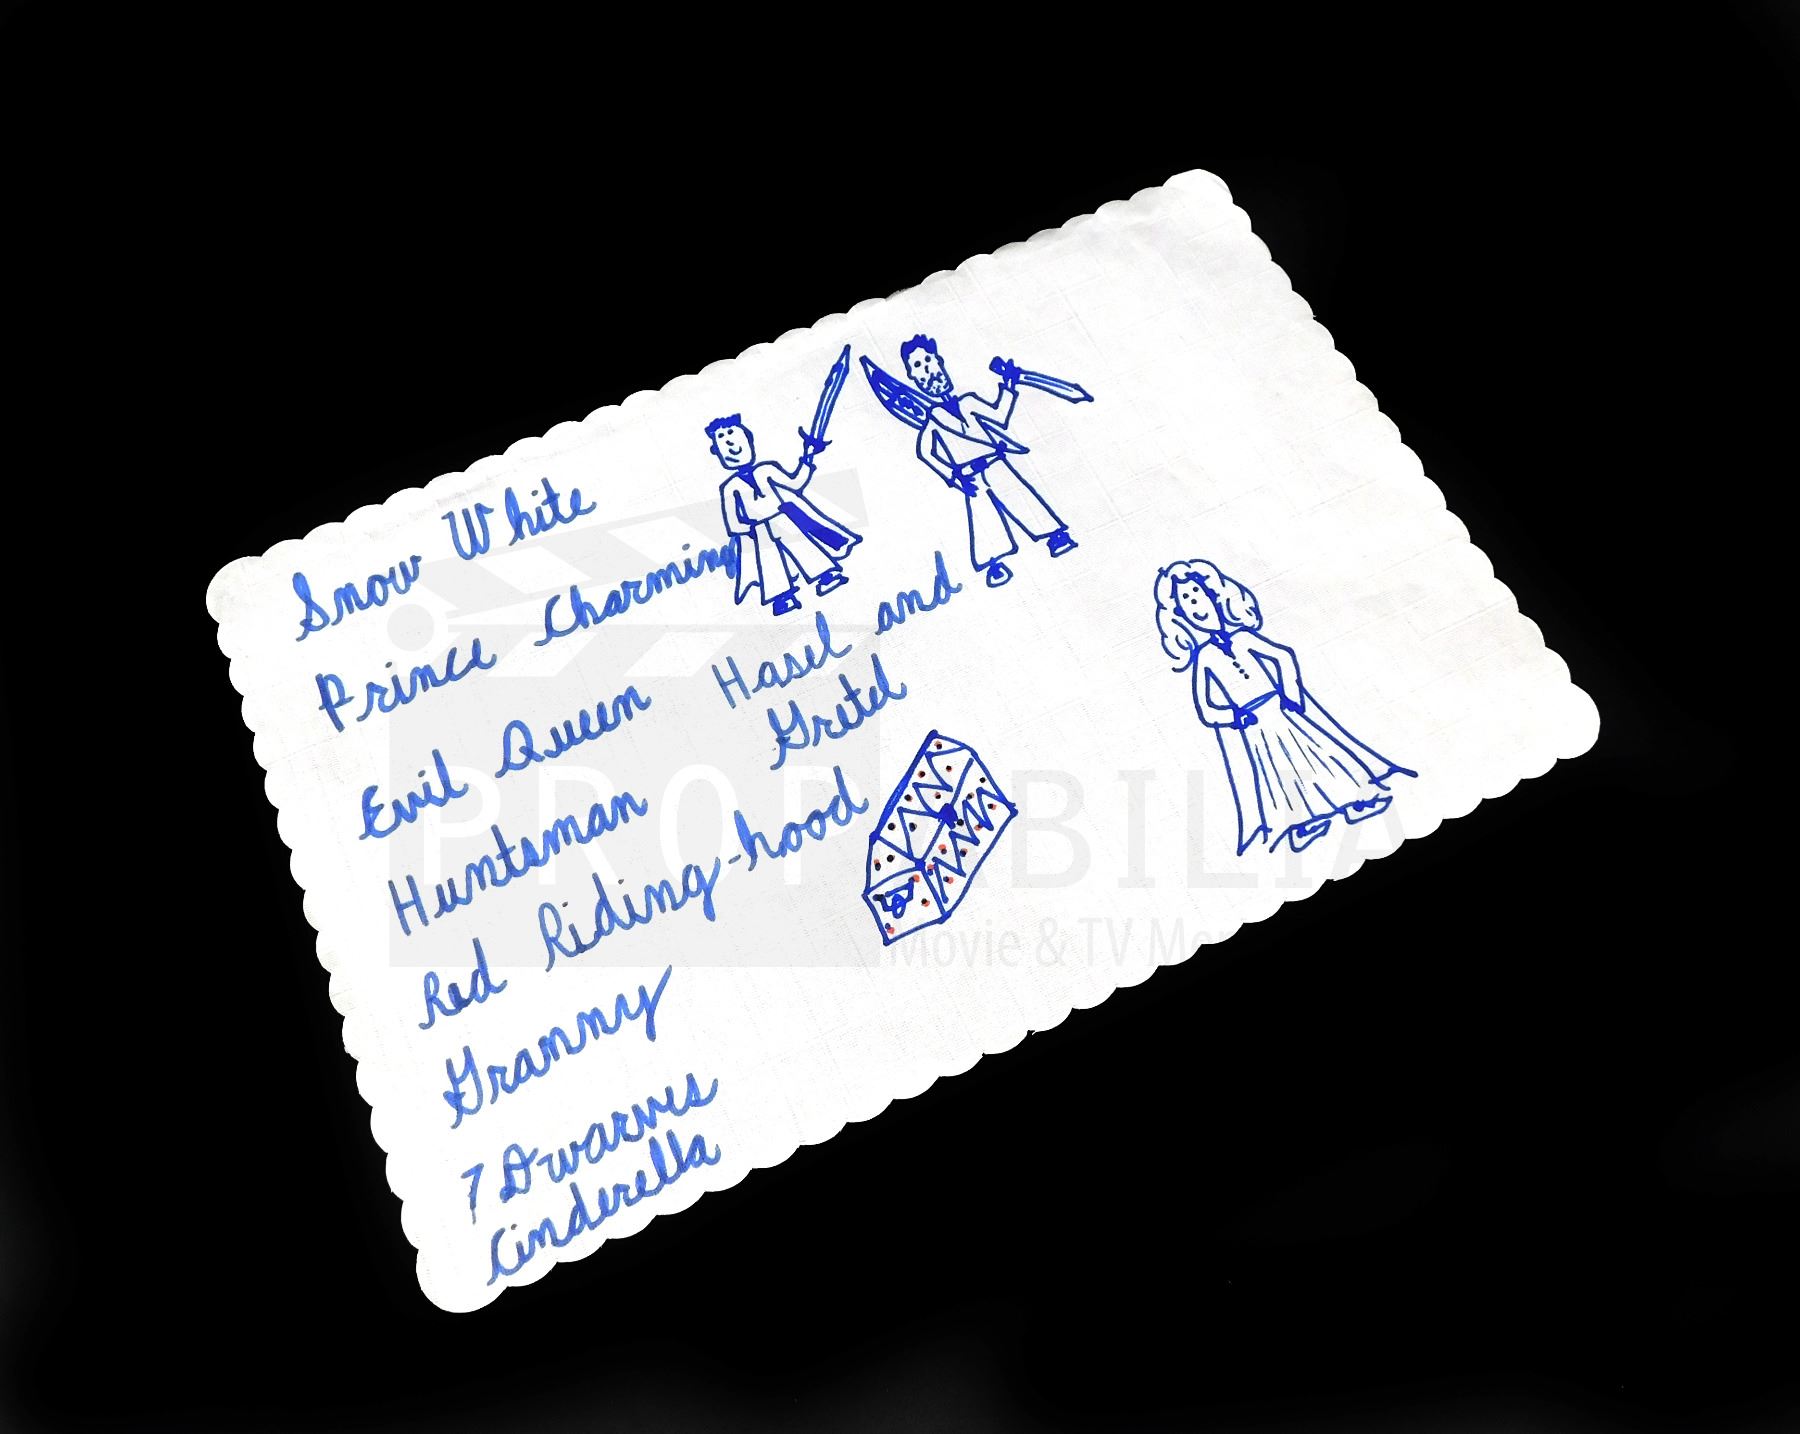 Snow White
Prince Charming
Evil Queen
Huntsman
Red Riding-hood
Grammy
7 Dwarves
Cinderella
Hasel and
Gretel
PROPABILIA
Movie & TV Mem